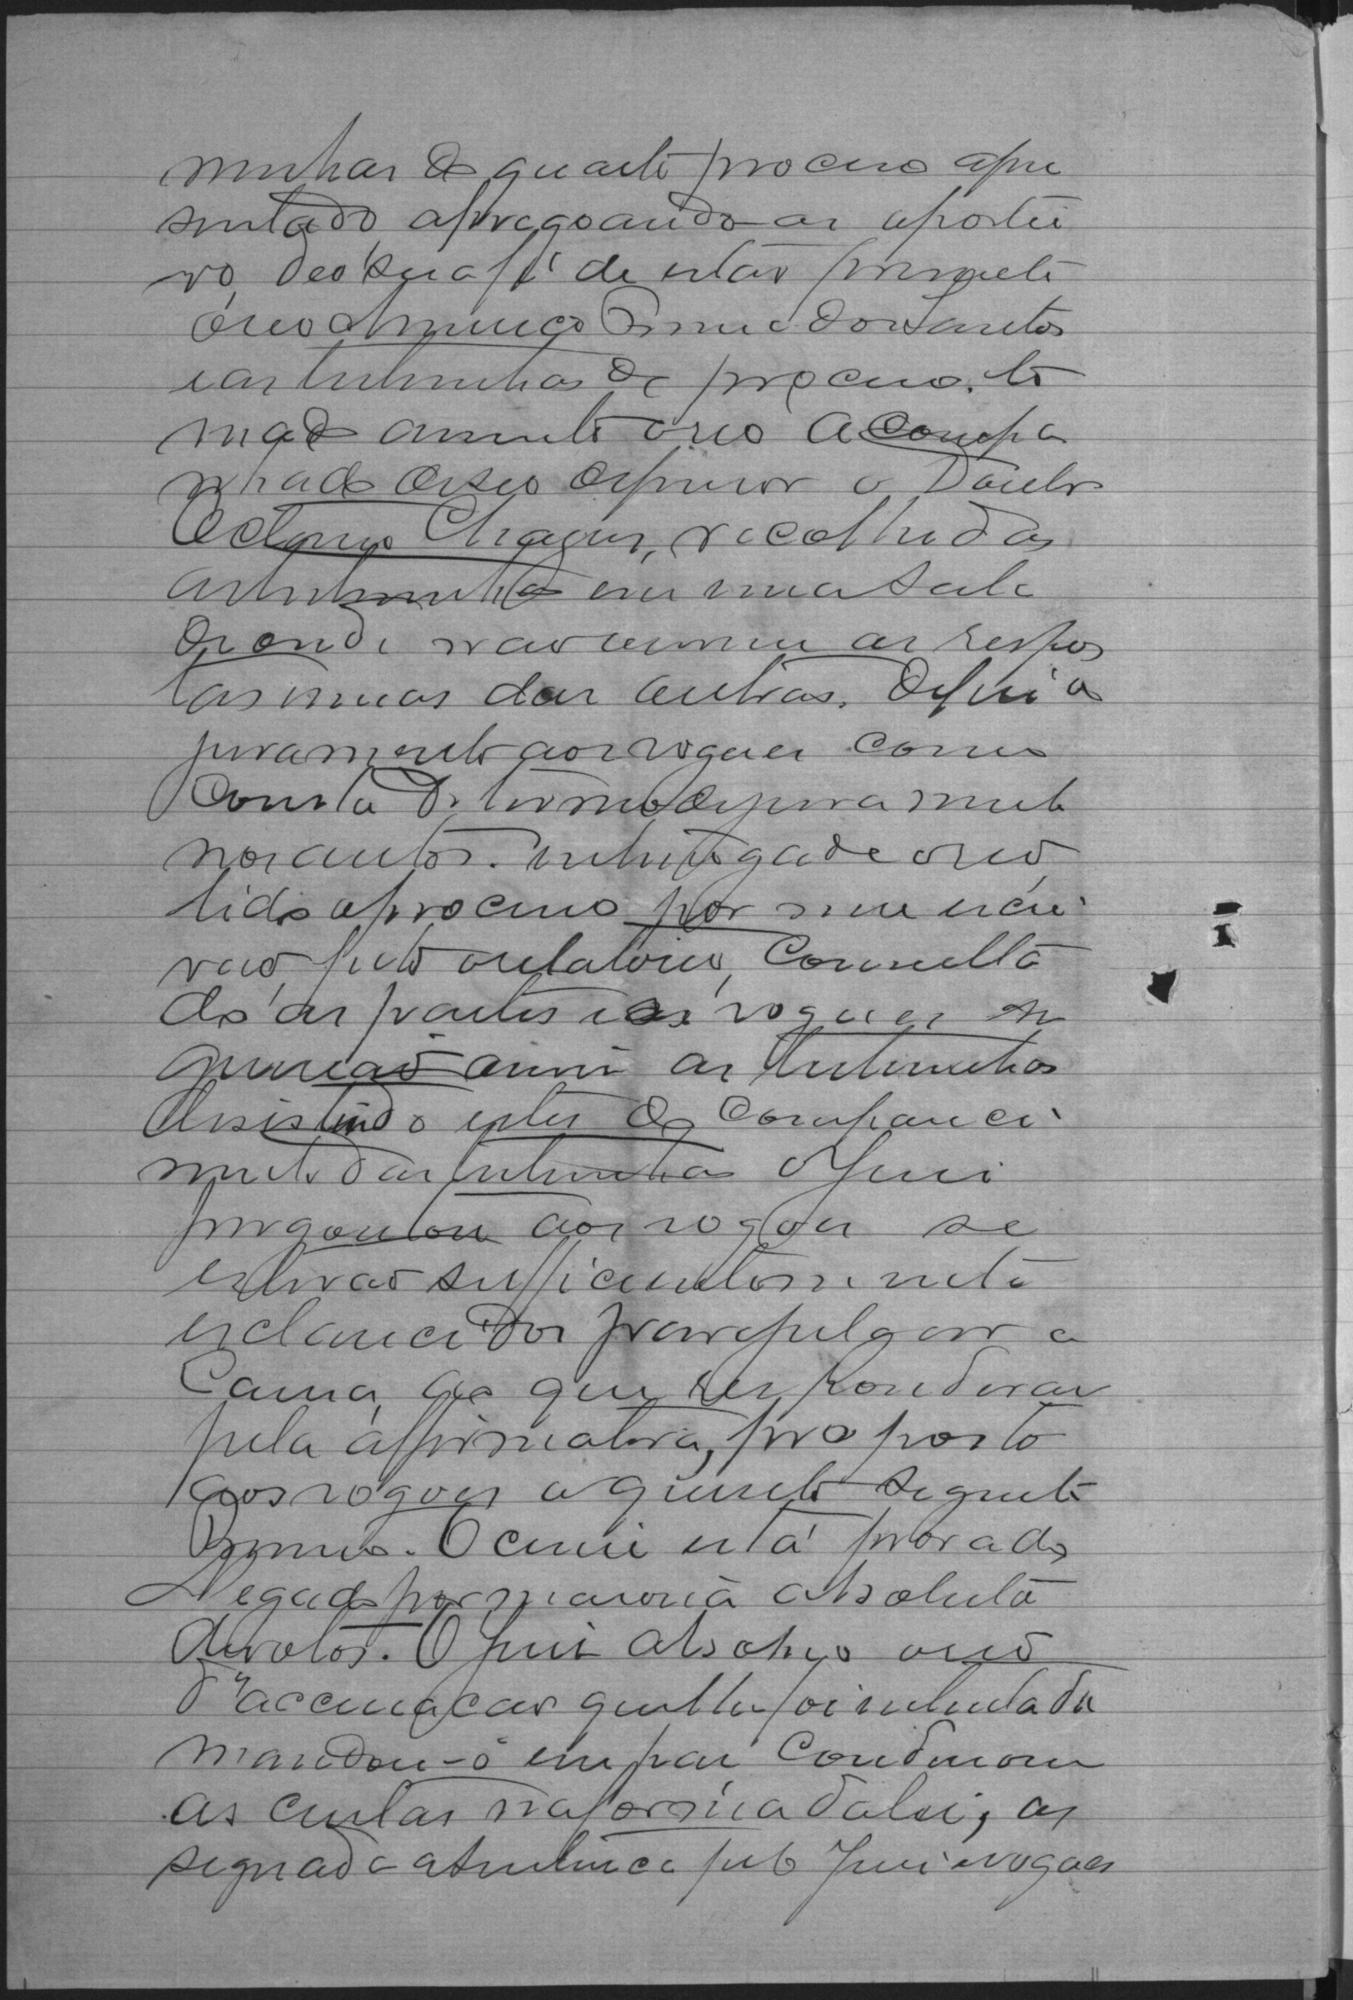 munhas do quarto processo apre
sentado apregoando-as o portei
ro, deo sua fé de estar presente
o reo dos Santos
e as testemunhas do processo. to
mado assento o reo acompa
nhado de seo defensor o Doutor
Octavio Chagas, recolhidas
as testemunhas em uma sala
de onde não ouvissem as respos
tas umas das outras. Deferi o
juramento aos vogaes como
Consta do termo de juramento
nos autos. interrogado o reo,
lido o processo por mim escri
vão, feito o relatorio, Consulta
do as partes e os vogaes se
querião ouvir as testemunhas
desistindo estes do Compareci
mento das testemunhas o Juiz
perguntou aos vogaes se
estavão sufficientemente
esclarecidos para julgar a
Causa, ao que responderão
pela affirmativa, proposto
aos vogaes o quesito seguinte
Primeiro. O crime está provado
Negado por maioria absoluta
de votos. O Juiz absolveo o reo
d'accusação que lhe foi intentada
mandou-o em paz Condemnou
as custas na forma da lei, as
signado a sentença pelo Juiz e vogaes